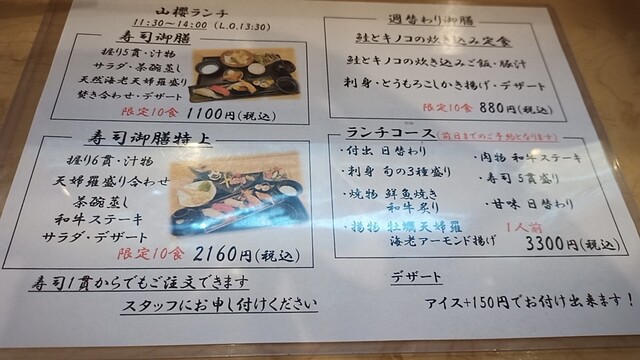 山櫻ランチ
11:30~14:00 (L.O.13:30)
寿司御膳
握り5貫・汁物
サラダ・茶碗蒸し
天然海老天婦羅盛り
焚き合わせ・デザート
限定10食 1100円(税込)
寿司御膳特上
握り6貫・汁物
天婦羅盛り合わせ
茶碗蒸し
和牛ステーキ
サラダ・デザート
限定10食 2160円(税込)
寿司1貫からでもご注文できます
スタッフにお申し付けください
週替わり御膳
鮭とキノコの炊き込み定食
鮭とキノコの炊き込みご飯・豚汁
刺身・とうもろこしかき揚げ・デザート
限定10食 880円(税込)
ランチコース(前日までのご予約となります)
・付出 日替わり
・刺身 旬の3種盛り
・焼物 鮮魚焼き
和牛炙り
・揚物 牡蠣天婦羅
海老アーモンド揚げ
・肉物 和牛ステーキ
・寿司 5貫盛り
・甘味 日替わり
1人前
3300円(税込)
デザート
アイス+150円でお付け出来ます!